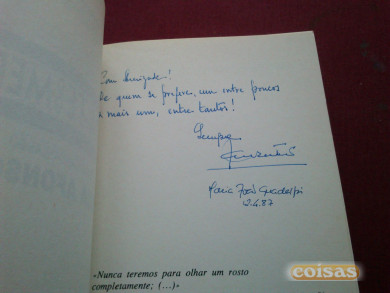 Com Amizade!
De quem se prefere, um entre poucos
a mais um, entre tantos!
Sempre
Maria João
12.4.87
«Nunca teremos para olhar um rosto
completamente; (...)»
coisas